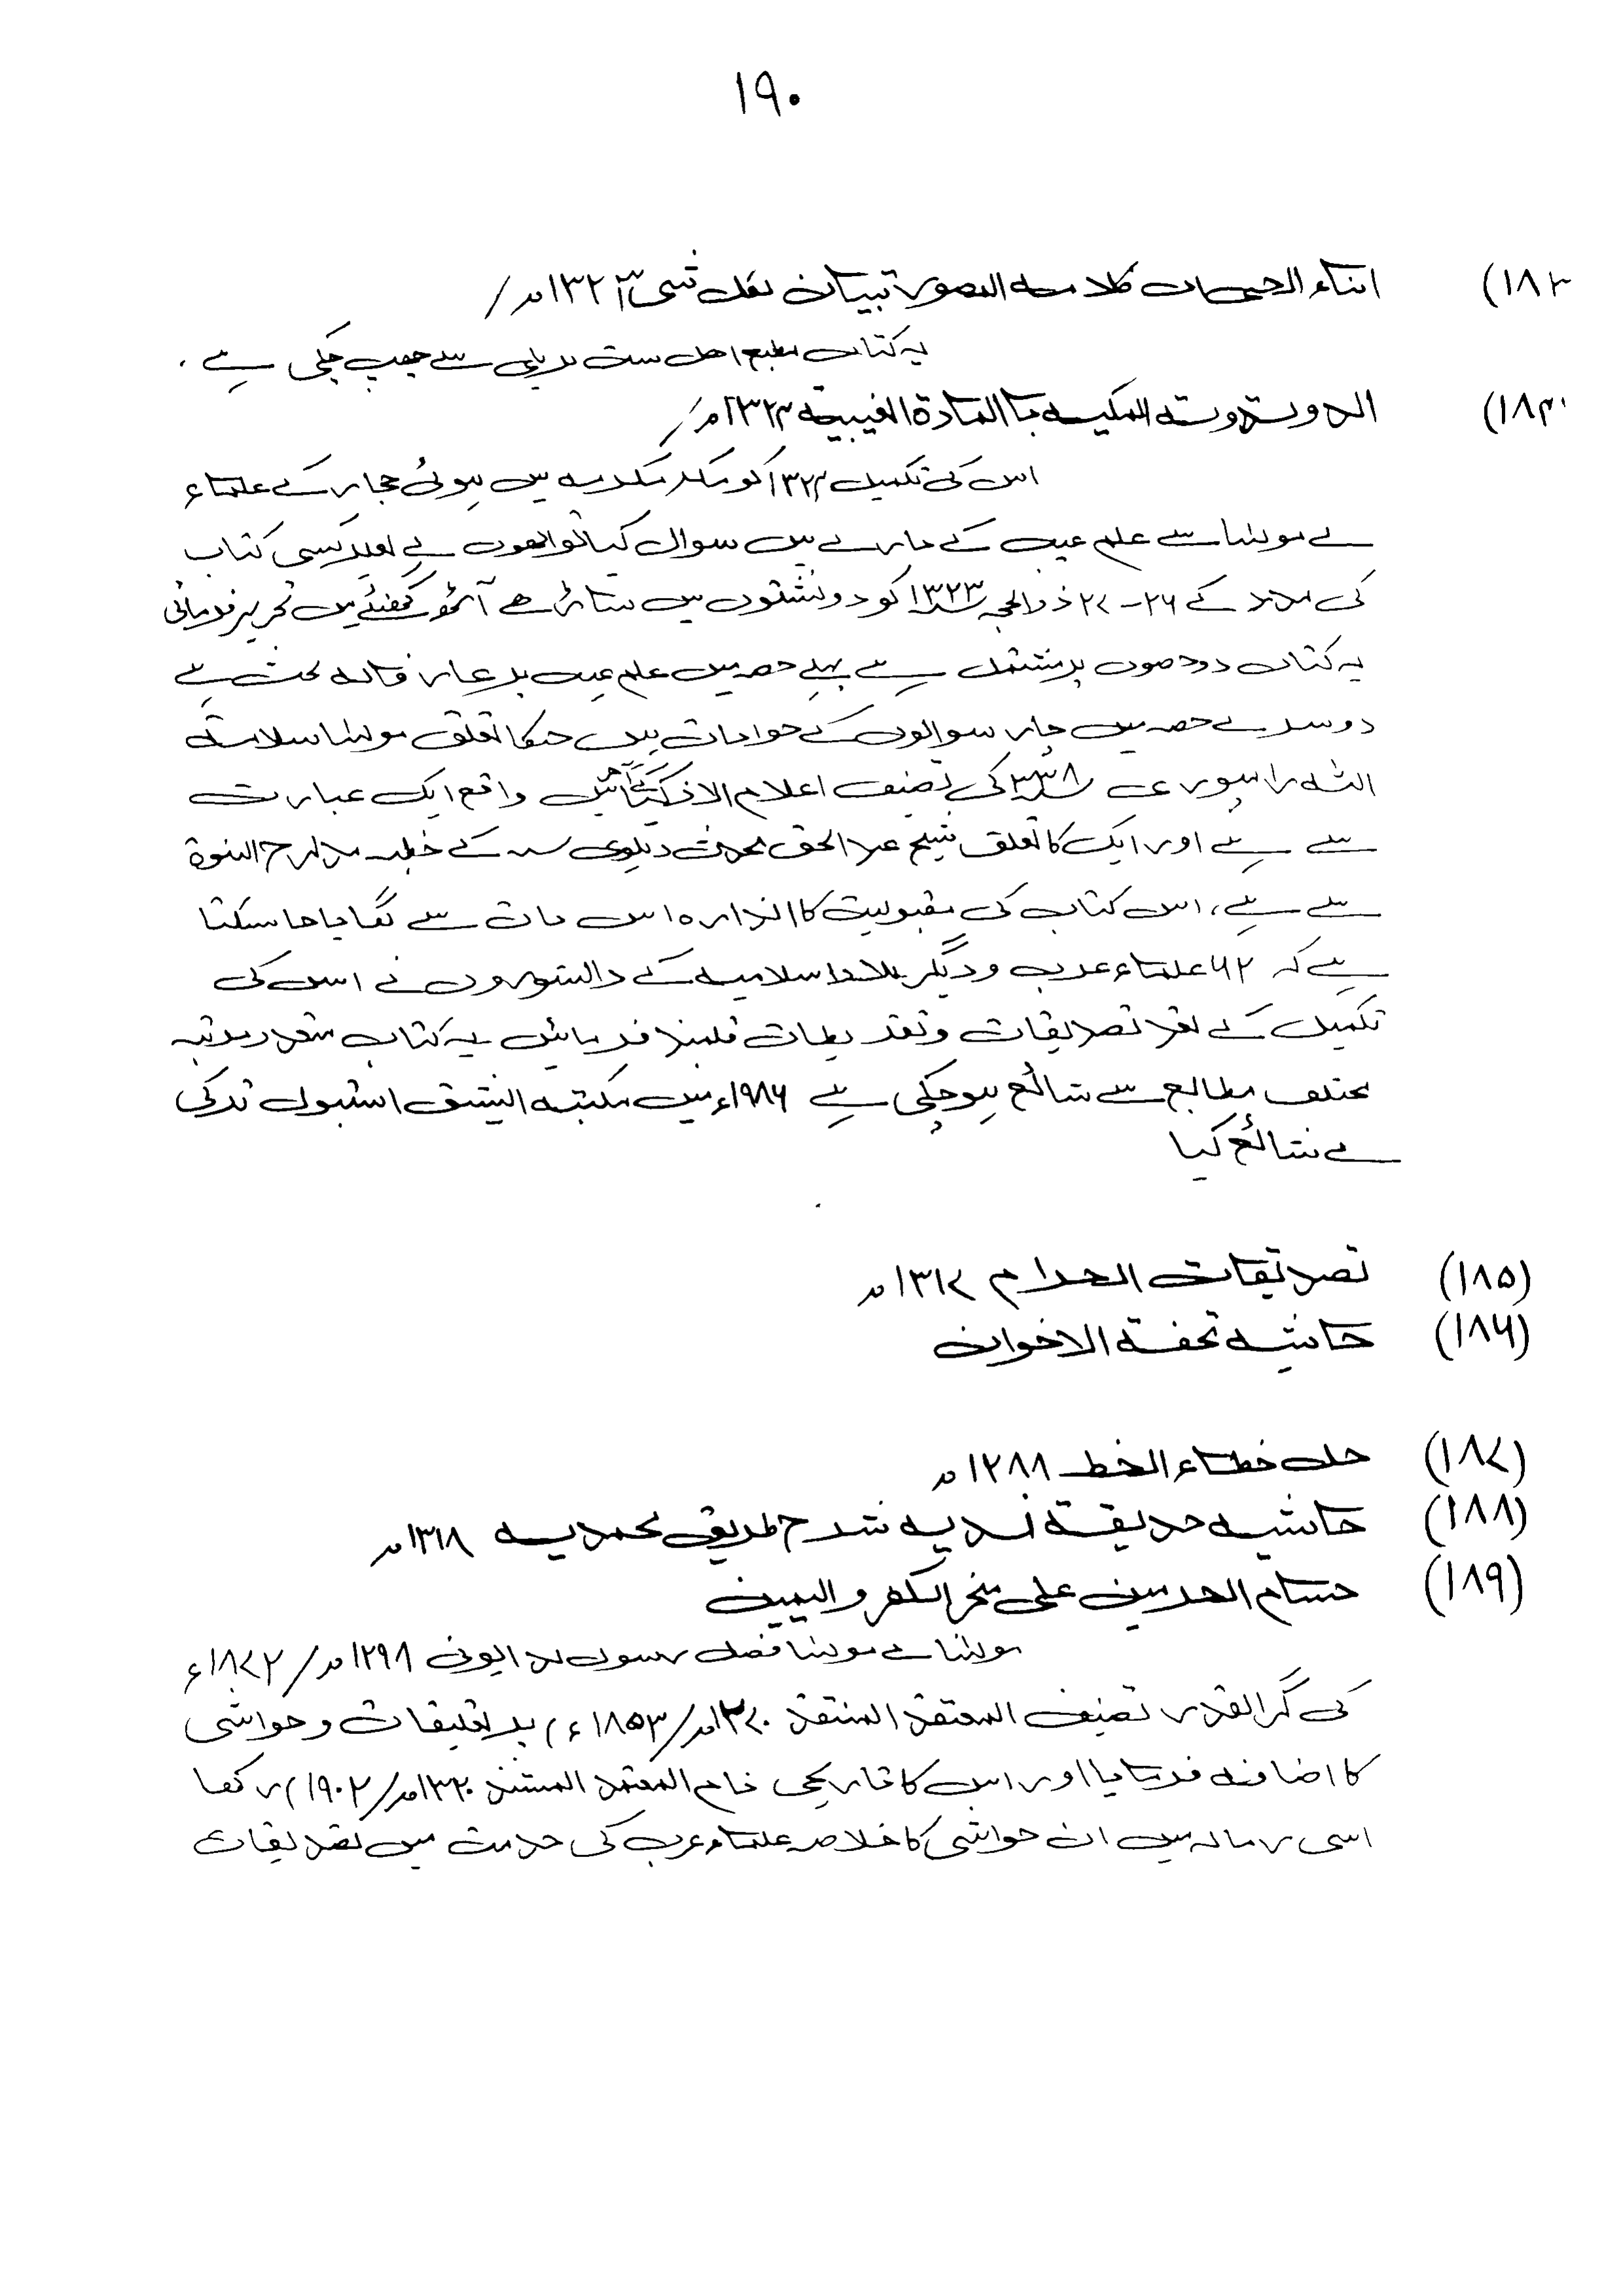 ۱۹۰
۱۸۳) انباء الحی ان کلامہ المصون تبیان لکل شی ۱۳۲۳ھ /
یہ کتاب مطبع اھل سنت بریلی سے چھپ چکی ہے ۔
۱۸۴) الدولتہ المکیہ با المادۃ الغیبیتہ ۱۳۲۳ھ /
اس کی تکمیل ۱۳۲۳ کو مکہ مکرمہ میں ہوئی حجاز کے علماء
نے مولٰنا سے علم غیب کے بارے میں سوال کیا تو انھوں نے بغیر کسی کتاب
کی مدد کے ۲۶-۲۷ ذوالحجہ ۱۳۲۳ کو دو نشتوں میں ساڑھے آٹھ گھنٹے میں تحریر فرمائی
یہ کتاب دو حصوں پر مشتمل ہے پہلے حصہ میں علم غیب پر عارفانہ بحث ہے
دوسرے حصہ میں چار سوالوں کے جوابات ہیں جنکا تعلق مولٰنا سلامتہ
اللہ رامپوری ۱۳۳۸ کی تصنیف اعلام الاذکیا میں واقع ایک عبارت
سے ہے اور ایک کا تعلق شیخ عبدالحق محدث دہلوی کے خطبہ مدارج النبوۃ
سے ہے، اس کتاب کی مقبولیت کا اندازہ اس بات سے لگایا جا سکتا
ہے کہ ۶۲ علماء عرب و دیگر بلاد اسلامیہ کے دانشوروں نے اس کی
تکمیل کے بعد تصدیقات و تقریظات قلمبند فرمائیں یہ کتاب متعدد مرتبہ
مختلف مطابع سے شائع ہوچکی ہے ۱۹۸۶ء میں مکتبہ الیشیق استنبول ترکی
نے شائع کیا
(۱۸۵) تصدیقات الحرام ۱۳۱۷ھ
(۱۸۶) حاشیہ تحفتہ الاخوان
(۱۸۷) حل خطاء الخط ۱۲۸۸ھ
(۱۸۸) حاشیہ حدیقتہ ندیہ شرح طریق محمدیہ ۱۳۱۸ھ
(۱۸۹) حسام الحرمین علی منحر الکفر والیمین
مولٰنا نے مولٰنا فضل رسول بدایونی ۱۲۹۸ھ / ۱۸۷۲ء
کی گرانقدر تصنیف المعتقد المنتقد ۱۲۷۰ھ / ۱۸۵۳ء) پر تعلیقات و حواشی
کا اضافہ فرمایا اور اس کا تاریخی نام المعتمد المستند ۱۳۲۰ھ / ۱۹۰۲) رکھا
اسی رسالہ میں ان حواشی کا خلاصہ علماء عرب کی خدمت میں تصدیقات